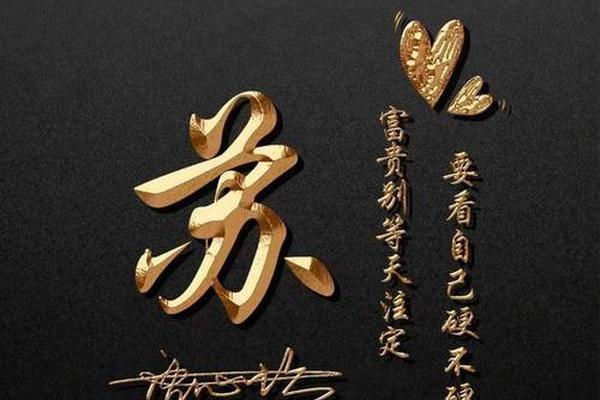 苏
富贵别等天注定
要看自己硬不硬